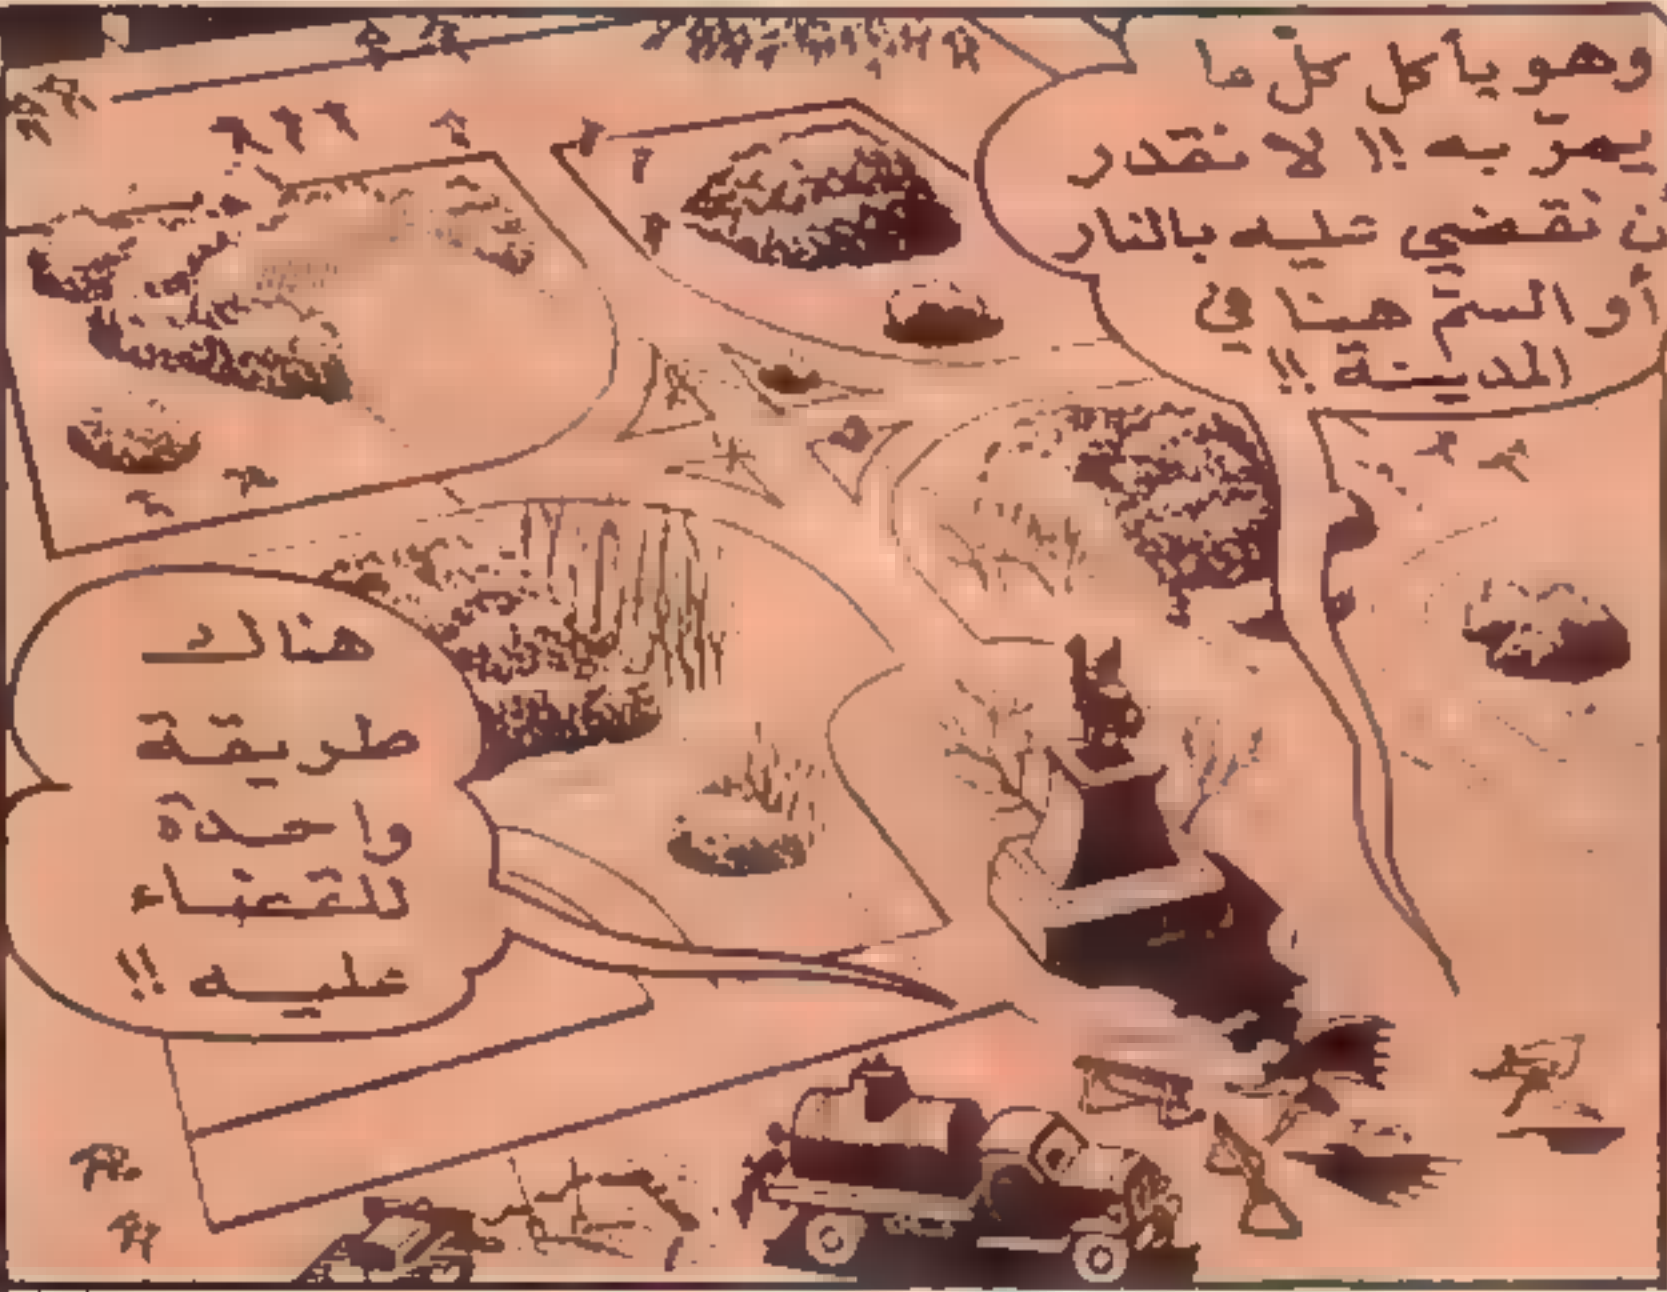 وهو يأكل كل ما
يمرّ به !! لا نقدر
ن نقضي عليه بالنار
أو السمّ هنا في
المدينة !!
هناك
طريقة
واحدة
للقضاء
عليه !!